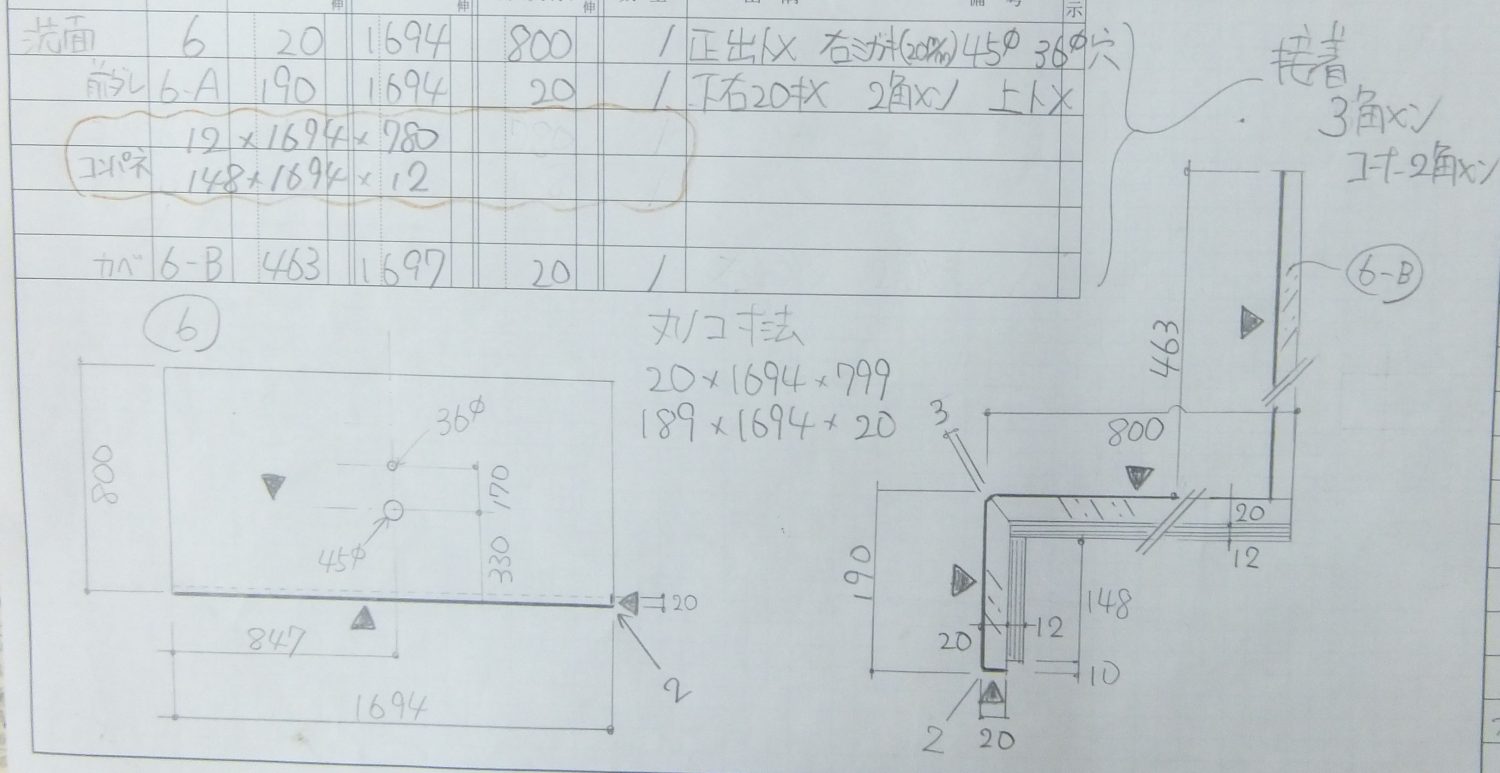 伸 伸 伸 示
洗面 6 20 1694 800 1 正出トメ 右ミガキ(20m/m) 45φ 36φ穴
前ダレ 6-A 190 1694 20 1 下右20キメ 2角メン 上トメ
12×1694×780
コンパネ 148×1694×12
カベ 6-B 463 1697 20 1
接着
3角メン
コーナー2角メン
6-B
6
マルノコ寸法
20×1694×799
189×1694×20
463
3
800
36φ
800
170
20
45φ
330
12
190
148
20
847
20
12
10
2
1694
2
20